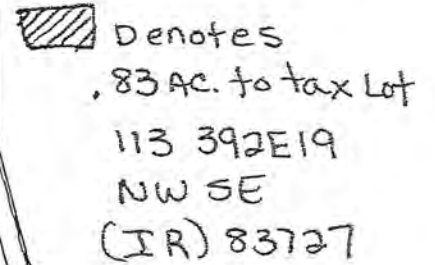 Denotes
.83 AC. to tax Lot
113 392E19
NW SE
(IR) 83727